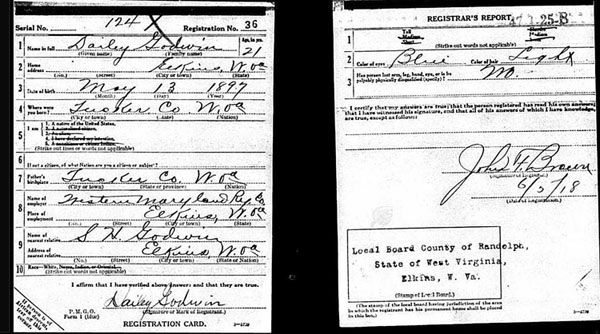 Serial No. 124 X Registration No. 36
1 Name in full Dailey Godwin Age, in yrs.
(Given name) (Family name) 21
2 Home address Elkins, W.Va
(No.) (Street) (City or town) (State)
3 Date of birth May 13 1897
(Month) (Day) (Year)
4 Where were you born? Tucker Co. W.Va
(City or town) (State) (Nation)
5 I am
1. A native of the United States.
2. A naturalized citizen.
3. An alien.
4. I have declared my intention.
(Strike out lines or words not applicable)
6 If not a citizen, of what Nation are you a citizen or subject?
7 Father's birthplace Tucker Co. W.Va
(City or town) (State or province) (Nation)
8 Name of employer Western Maryland Ry. Co
Place of employment Elkins, W.Va
(No.) (Street) (City or town) (State)
9 Name of nearest relative S. H. Godwin
Address of nearest relative Elkins, W.Va
(No.) (Street) (City or town) (State or Nation)
10 Race—White, Negro, Indian, or Oriental
(Strike out words not applicable)
I affirm that I have verified above answers and that they are true.
Dailey Godwin
P. M. G. O. (Signature or Mark of Registrant.)
Form 1 (blue)
REGISTRATION CARD.
If person is
REGISTRAR'S REPORT 47-1-25-B
1 Tall Slender
Medium Medium
Short Stout
(Strike out words not applicable)
2 Color of eyes Blue Color of hair Light
3 Has person lost arm, leg, hand, eye, or is he palpably physically disqualified (specify)? No
I certify that my answers are true; that the person registered has read his own answers;
that I have witnessed his signature, and that all of his answers of which I have knowledge
are true, except as follows:
John F. Brown
(Signature of Registrar)
6/5/18
(Date of Registration)
Local Board County of Randolph,
State of West Virginia,
Elkins, W. Va.
(Stamp of Local Board.)
(The stamp of the local board having jurisdiction of the area
in which the registrant has his permanent home shall be placed
in this box.)